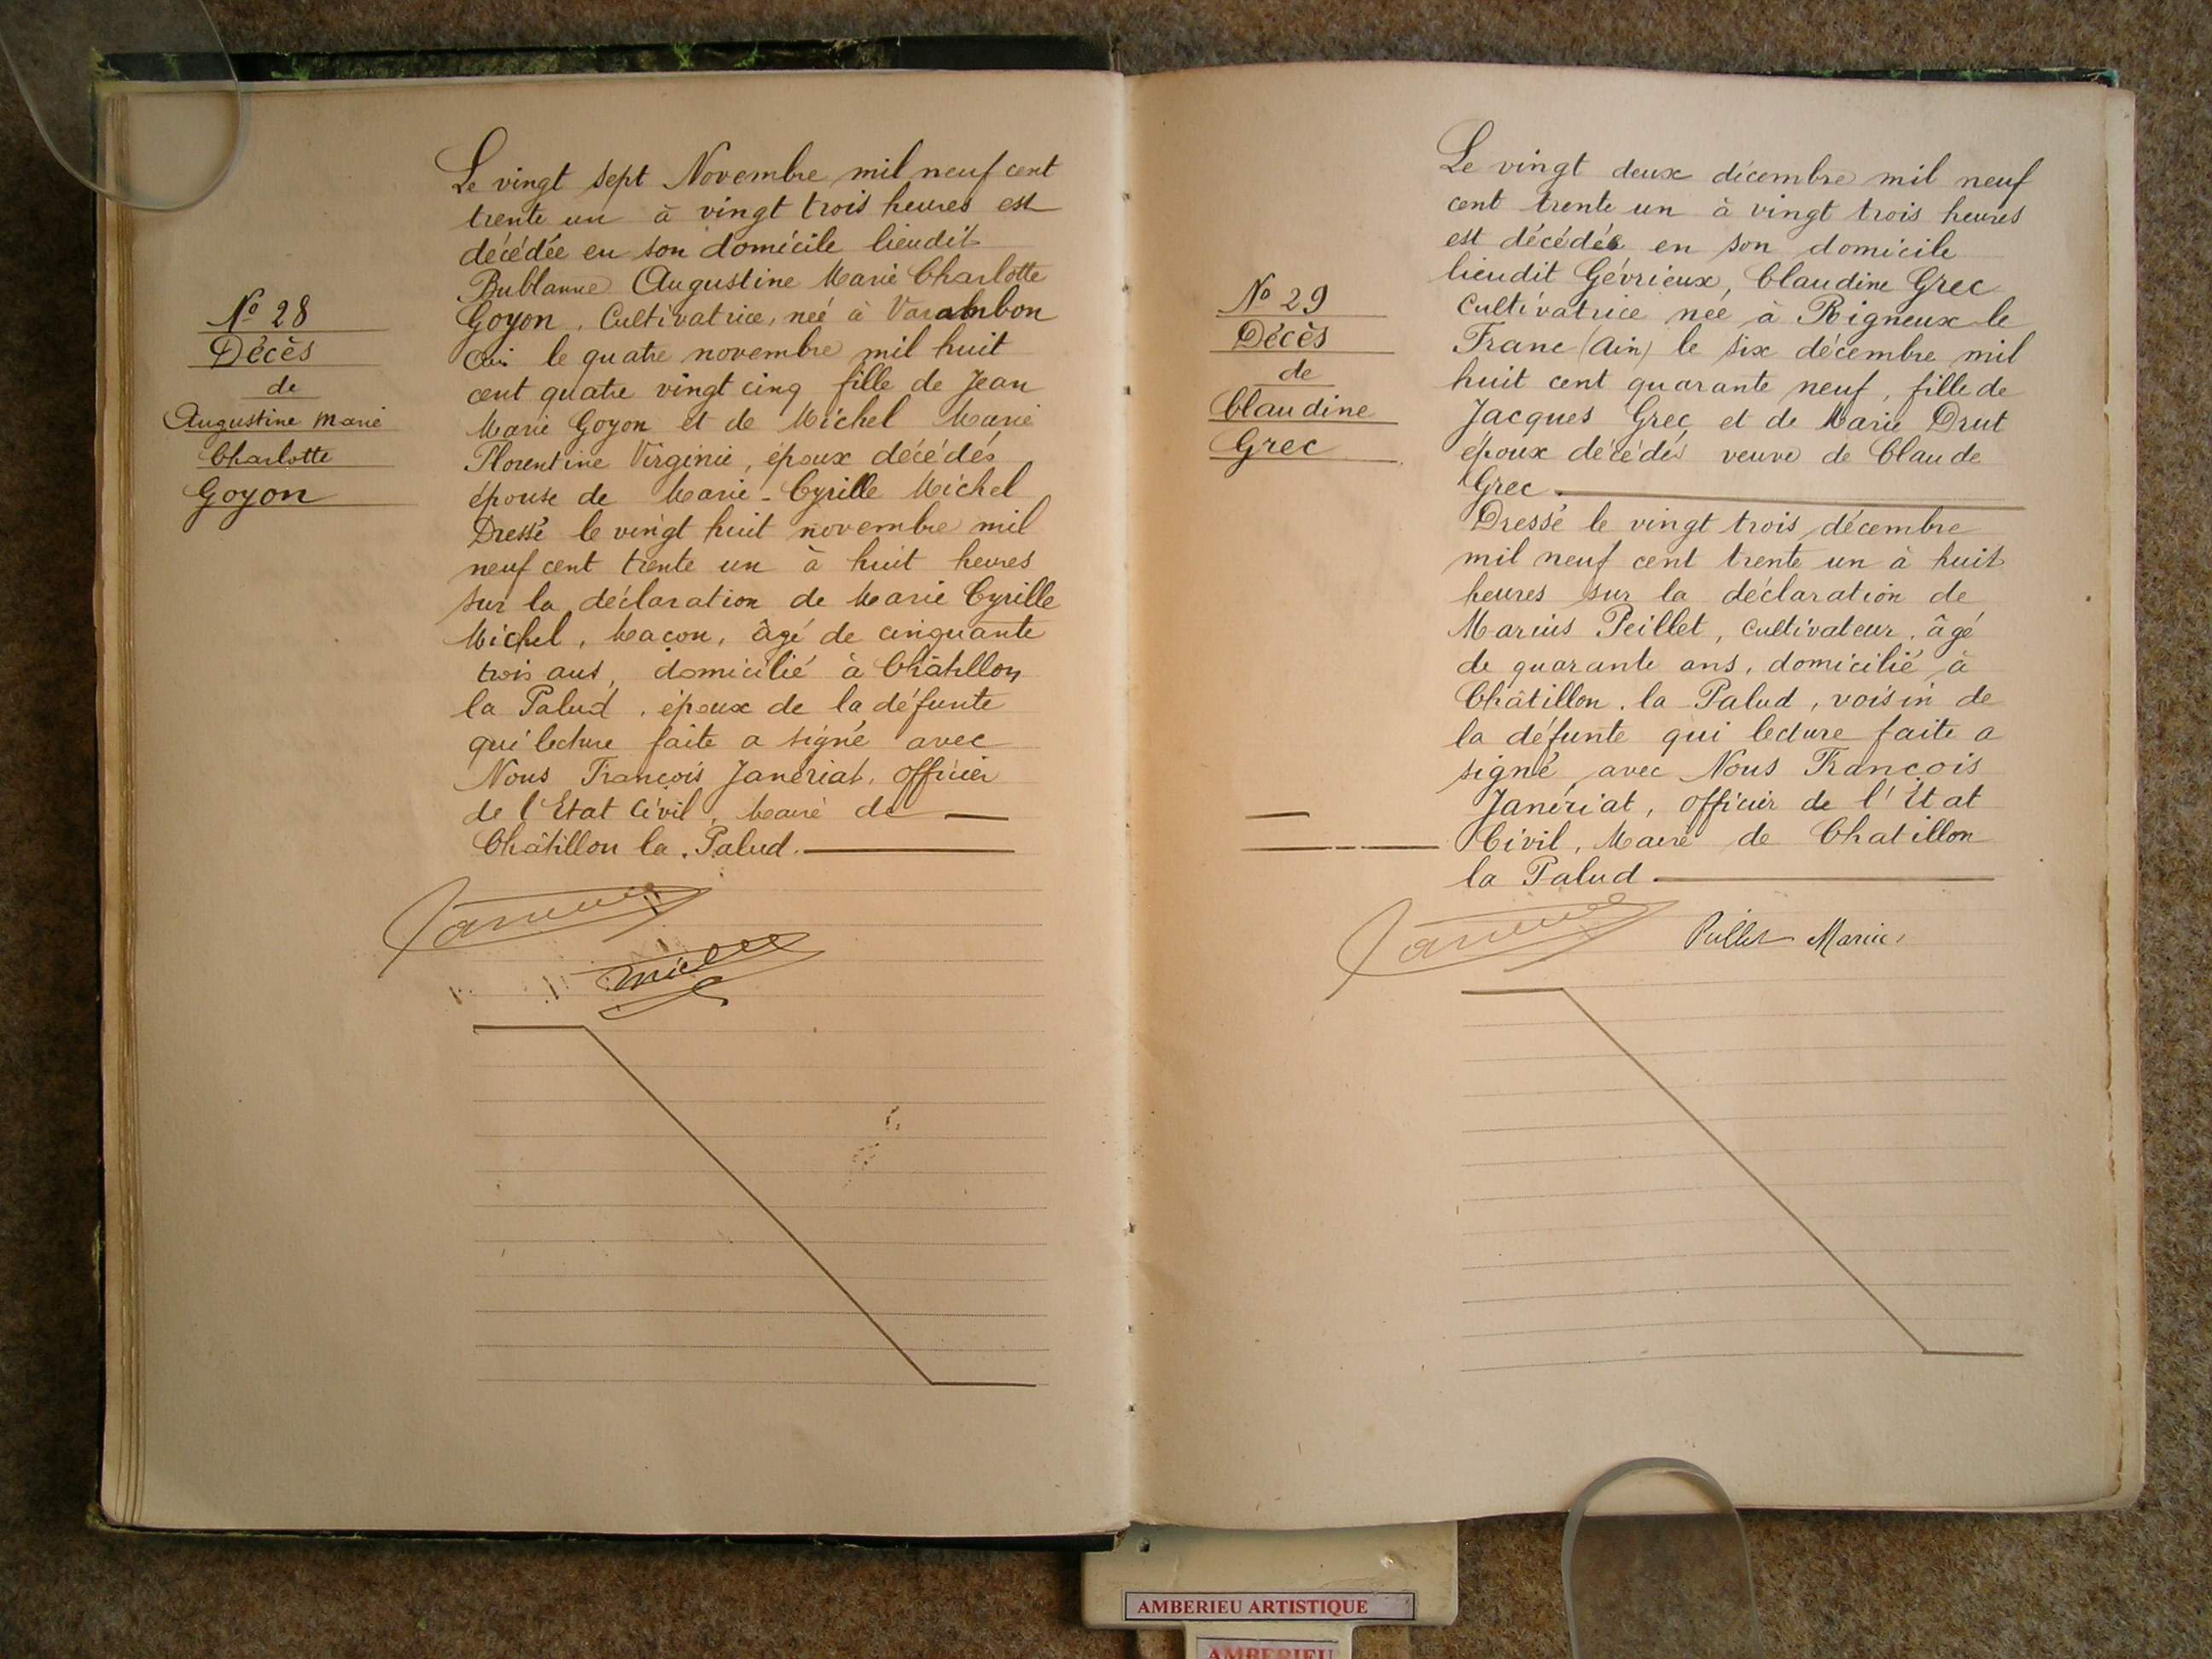 Nº 28
Décès
de
Augustine Marie
Charlotte
Goyon
Le vingt sept Novembre mil neuf cent
trente un à vingt trois heures est
décédée en son domicile lieudit
Bublanne Augustine Marie Charlotte
Goyon, Cultivatrice, née à Varambon
Ain le quatre novembre mil huit
cent quatre vingt cinq fille de Jean
Marie Goyon et de Michel Marie
Florentine Virginie, époux décédés,
épouse de Marie-Cyrille Michel
Dressé le vingt huit novembre mil
neuf cent trente un à huit heures
sur la déclaration de Marie Cyrille
Michel, Maçon, âgé de cinquante
trois ans, domicilié à Châtillon
la Palud, époux de la défunte
qui lecture faite a signé avec
Nous François Janériat, officier
de l'Etat Civil, Maire de
Châtillon la Palud.
Nº 29
Décès
de
Claudine
Grec
Le vingt deux décembre mil neuf
cent trente un à vingt trois heures
est décédée en son domicile
lieudit Gévrieux, Claudine Grec
Cultivatrice née à Rigneux le
Franc (Ain) le six décembre mil
huit cent quarante neuf, fille de
Jacques Grec et de Marie Drut
époux décédés veuve de Claude
Grec.
Dressé le vingt trois décembre
mil neuf cent trente un à huit
heures sur la déclaration de
Marius Peillet, cultivateur, âgé
de quarante ans, domicilié à
Châtillon la Palud, voisin de
la défunte qui lecture faite a
signé avec Nous François
Janériat, officier de l'Etat
Civil, Maire de Chatillon
la Palud
Peillet Marius
AMBERIEU ARTISTIQUE
AMBERIEU